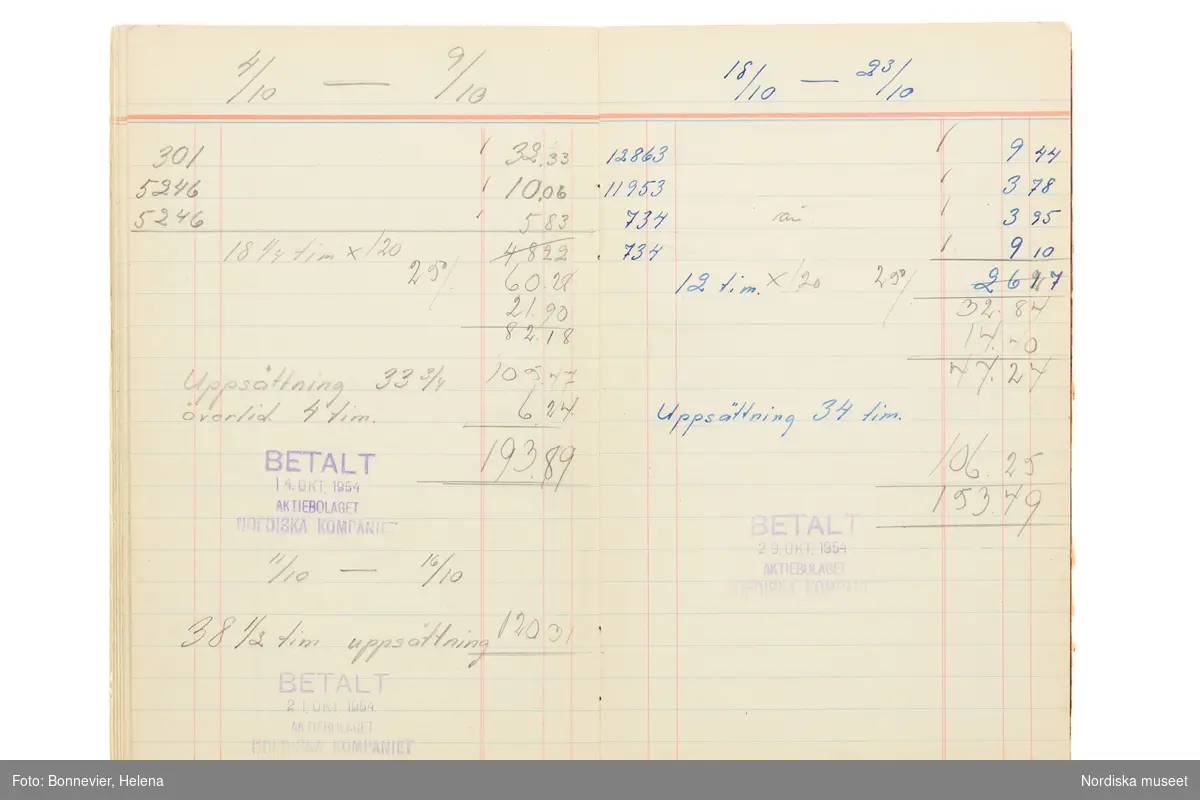 4/10 — 9/10
301 32.33
5246 10,06
5246 5 83
18 1/4 tim x 120 4822
25% 60.28
21.90
82.18
Uppsättning 33 3/4 105.47
övertid 4 tim. 6.24
193.89
BETALT
14. OKT. 1954
AKTIEBOLAGET
NORDISKA KOMPANIET
11/10 — 16/10
38 1/2 tim uppsättning 120 31
BETALT
21. OKT. 1954
AKTIEBOLAGET
NORDISKA KOMPANIET
18/10 — 23/10
12863 9 44
11953 3 78
734 3 95
734 9 10
12 tim. x 120 25% 26 27
32.84
14.40
47.24
Uppsättning 34 tim.
106.25
153.49
BETALT
29. OKT. 1954
AKTIEBOLAGET
NORDISKA KOMPANI
Foto: Bonnevier, Helena
Nordiska museet